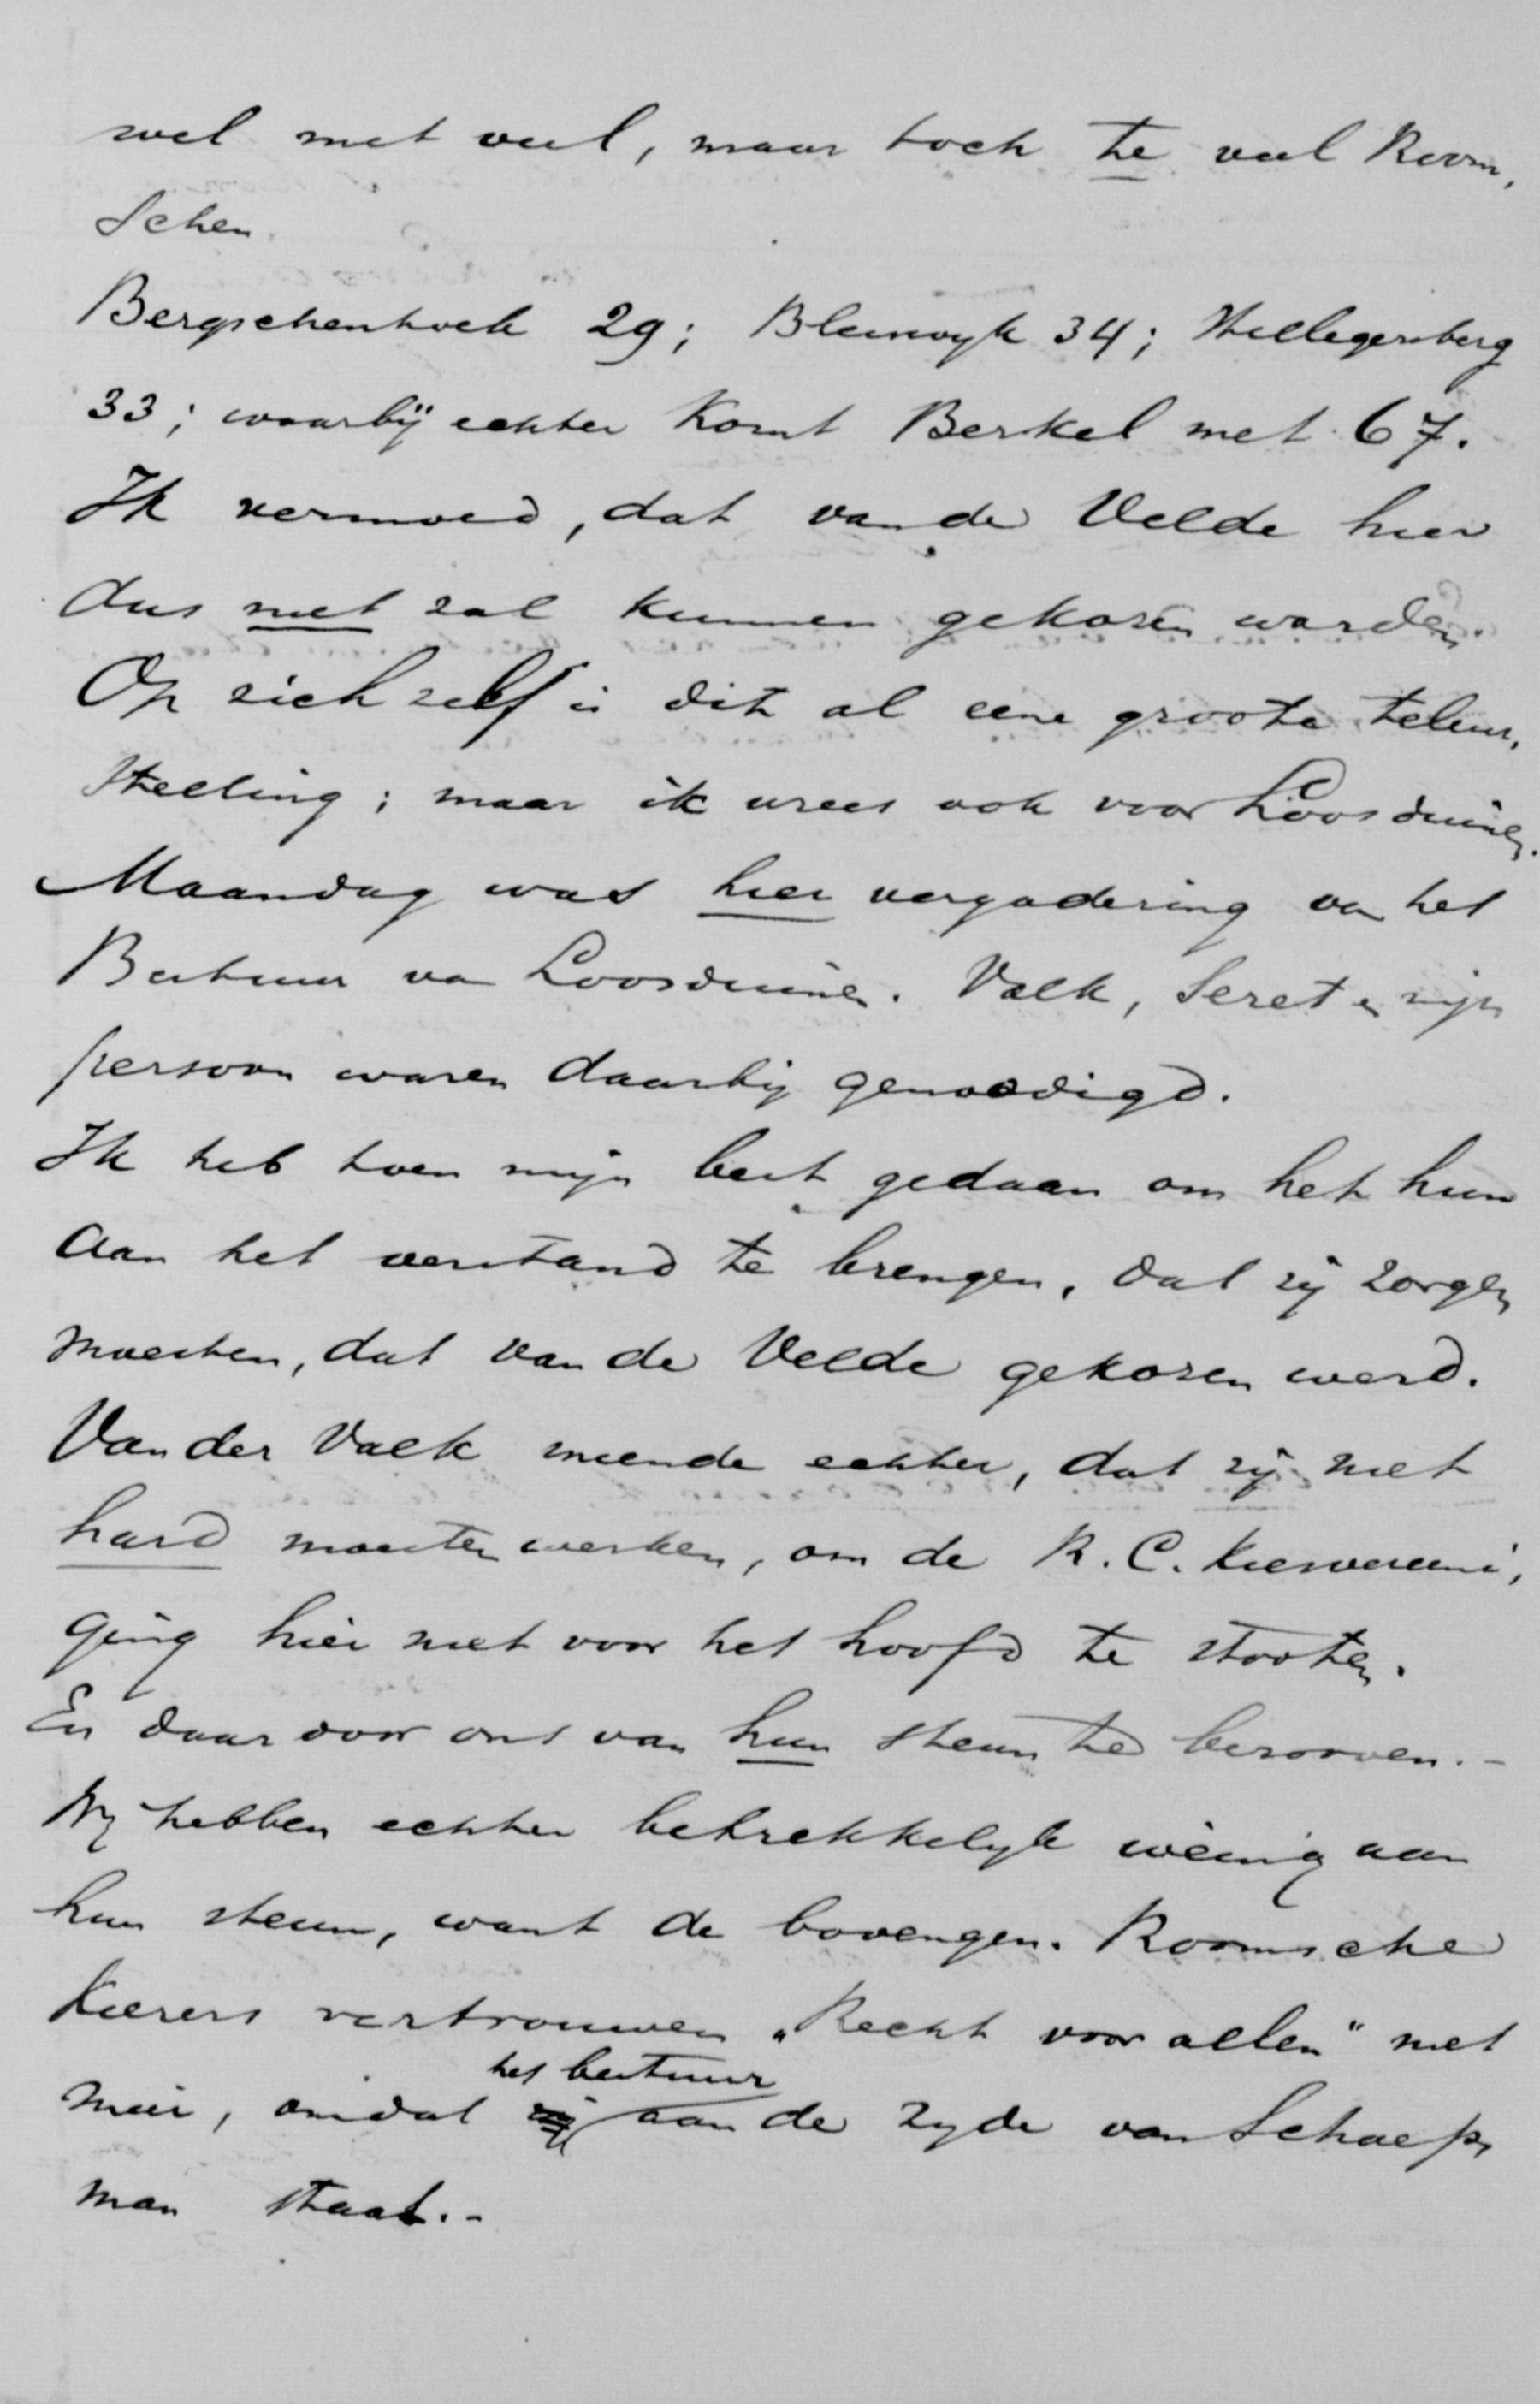 wel niet veel, maar toch te veel Room,
schen.
Bergschenhoek 29; Bleiswyk 34; Hillegersberg
33; waarbij echter komt Berkel met 67.
Ik vermoed, dat van de Velde hier
dus niet zal kunnen gekozen worden.
Op zich zelf is dit al eene groote teleur,
stelling; maar ik vrees ook voor Loosduinen.
Maandag was hier vergadering van het
Bestuur van Loosduinen. Valk, Seret en mijn
persoon waren daarbij genoodigd.
Ik heb toen mijn best gedaan om het hun
aan het verstand te brengen, dat zij zorgen
moesten, dat van de Velde gekozen werd.
Van der Valk meende echter, dat zij niet
hard moesten werken, om de R. C. Kiesvereeni,
ging hier niet voor het hoofd te stooten.
En daardoor ons van hun steun te berooven.-
Wij hebben echter betrekkelyk weinig aan
hun steun, want de bovengen. Roomsche
kiezers vertrouwen „Recht voor allen" niet
het bestuur
meer, omdat zij aan de zyde van Schaep,
man staat.-